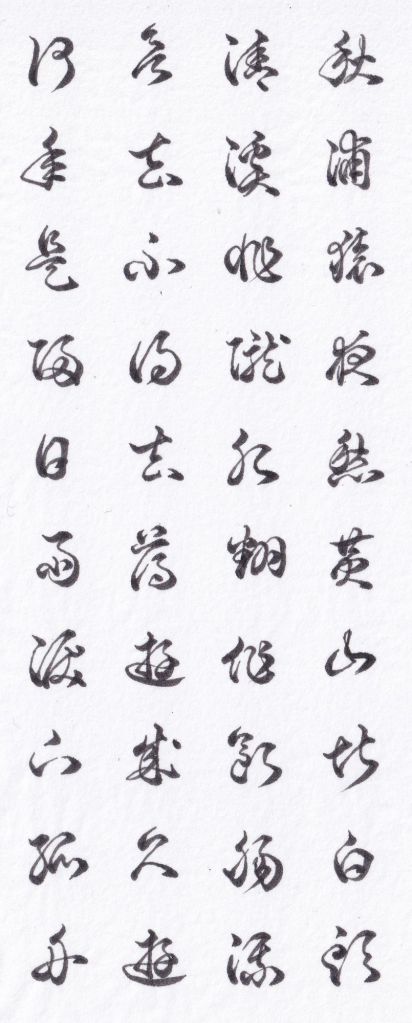 秋浦猿夜愁黄山堪白頭
清溪非隴水翻作斷腸流
欲去不得去薄遊成久遊
何年是歸日雨淚下孤舟